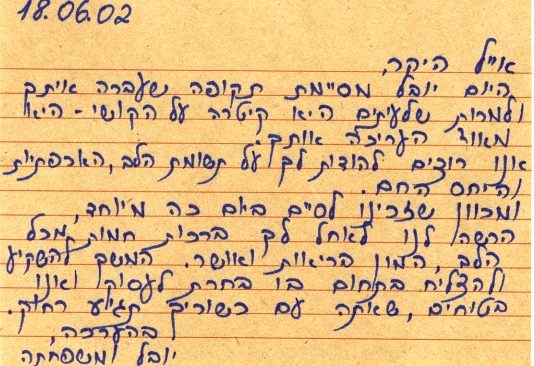 18.06.02
אייל היקר,
היום יובל מסיימת תקופה שעברה איתך
ולמרות שלעיתים היא קיטרה על הקושי - היא
מאוד העריכה אותך.
אנו רוצים להודות לך על תשומת הלב, האכפתיות
והיחס החם.
ומכוון שזכינו לסיים ביום כה מיוחד,
הרשה לנו לאחל לך ברכות חמות מכל
הלב, המון בריאות ואושר. המשך להשקיע
ולהצליח בתחום בו בחרת לעסוק ואנו
בטוחים, שאתה עם כשוריך תגיע רחוק.
בהערכה,
יובל ומשפחתה